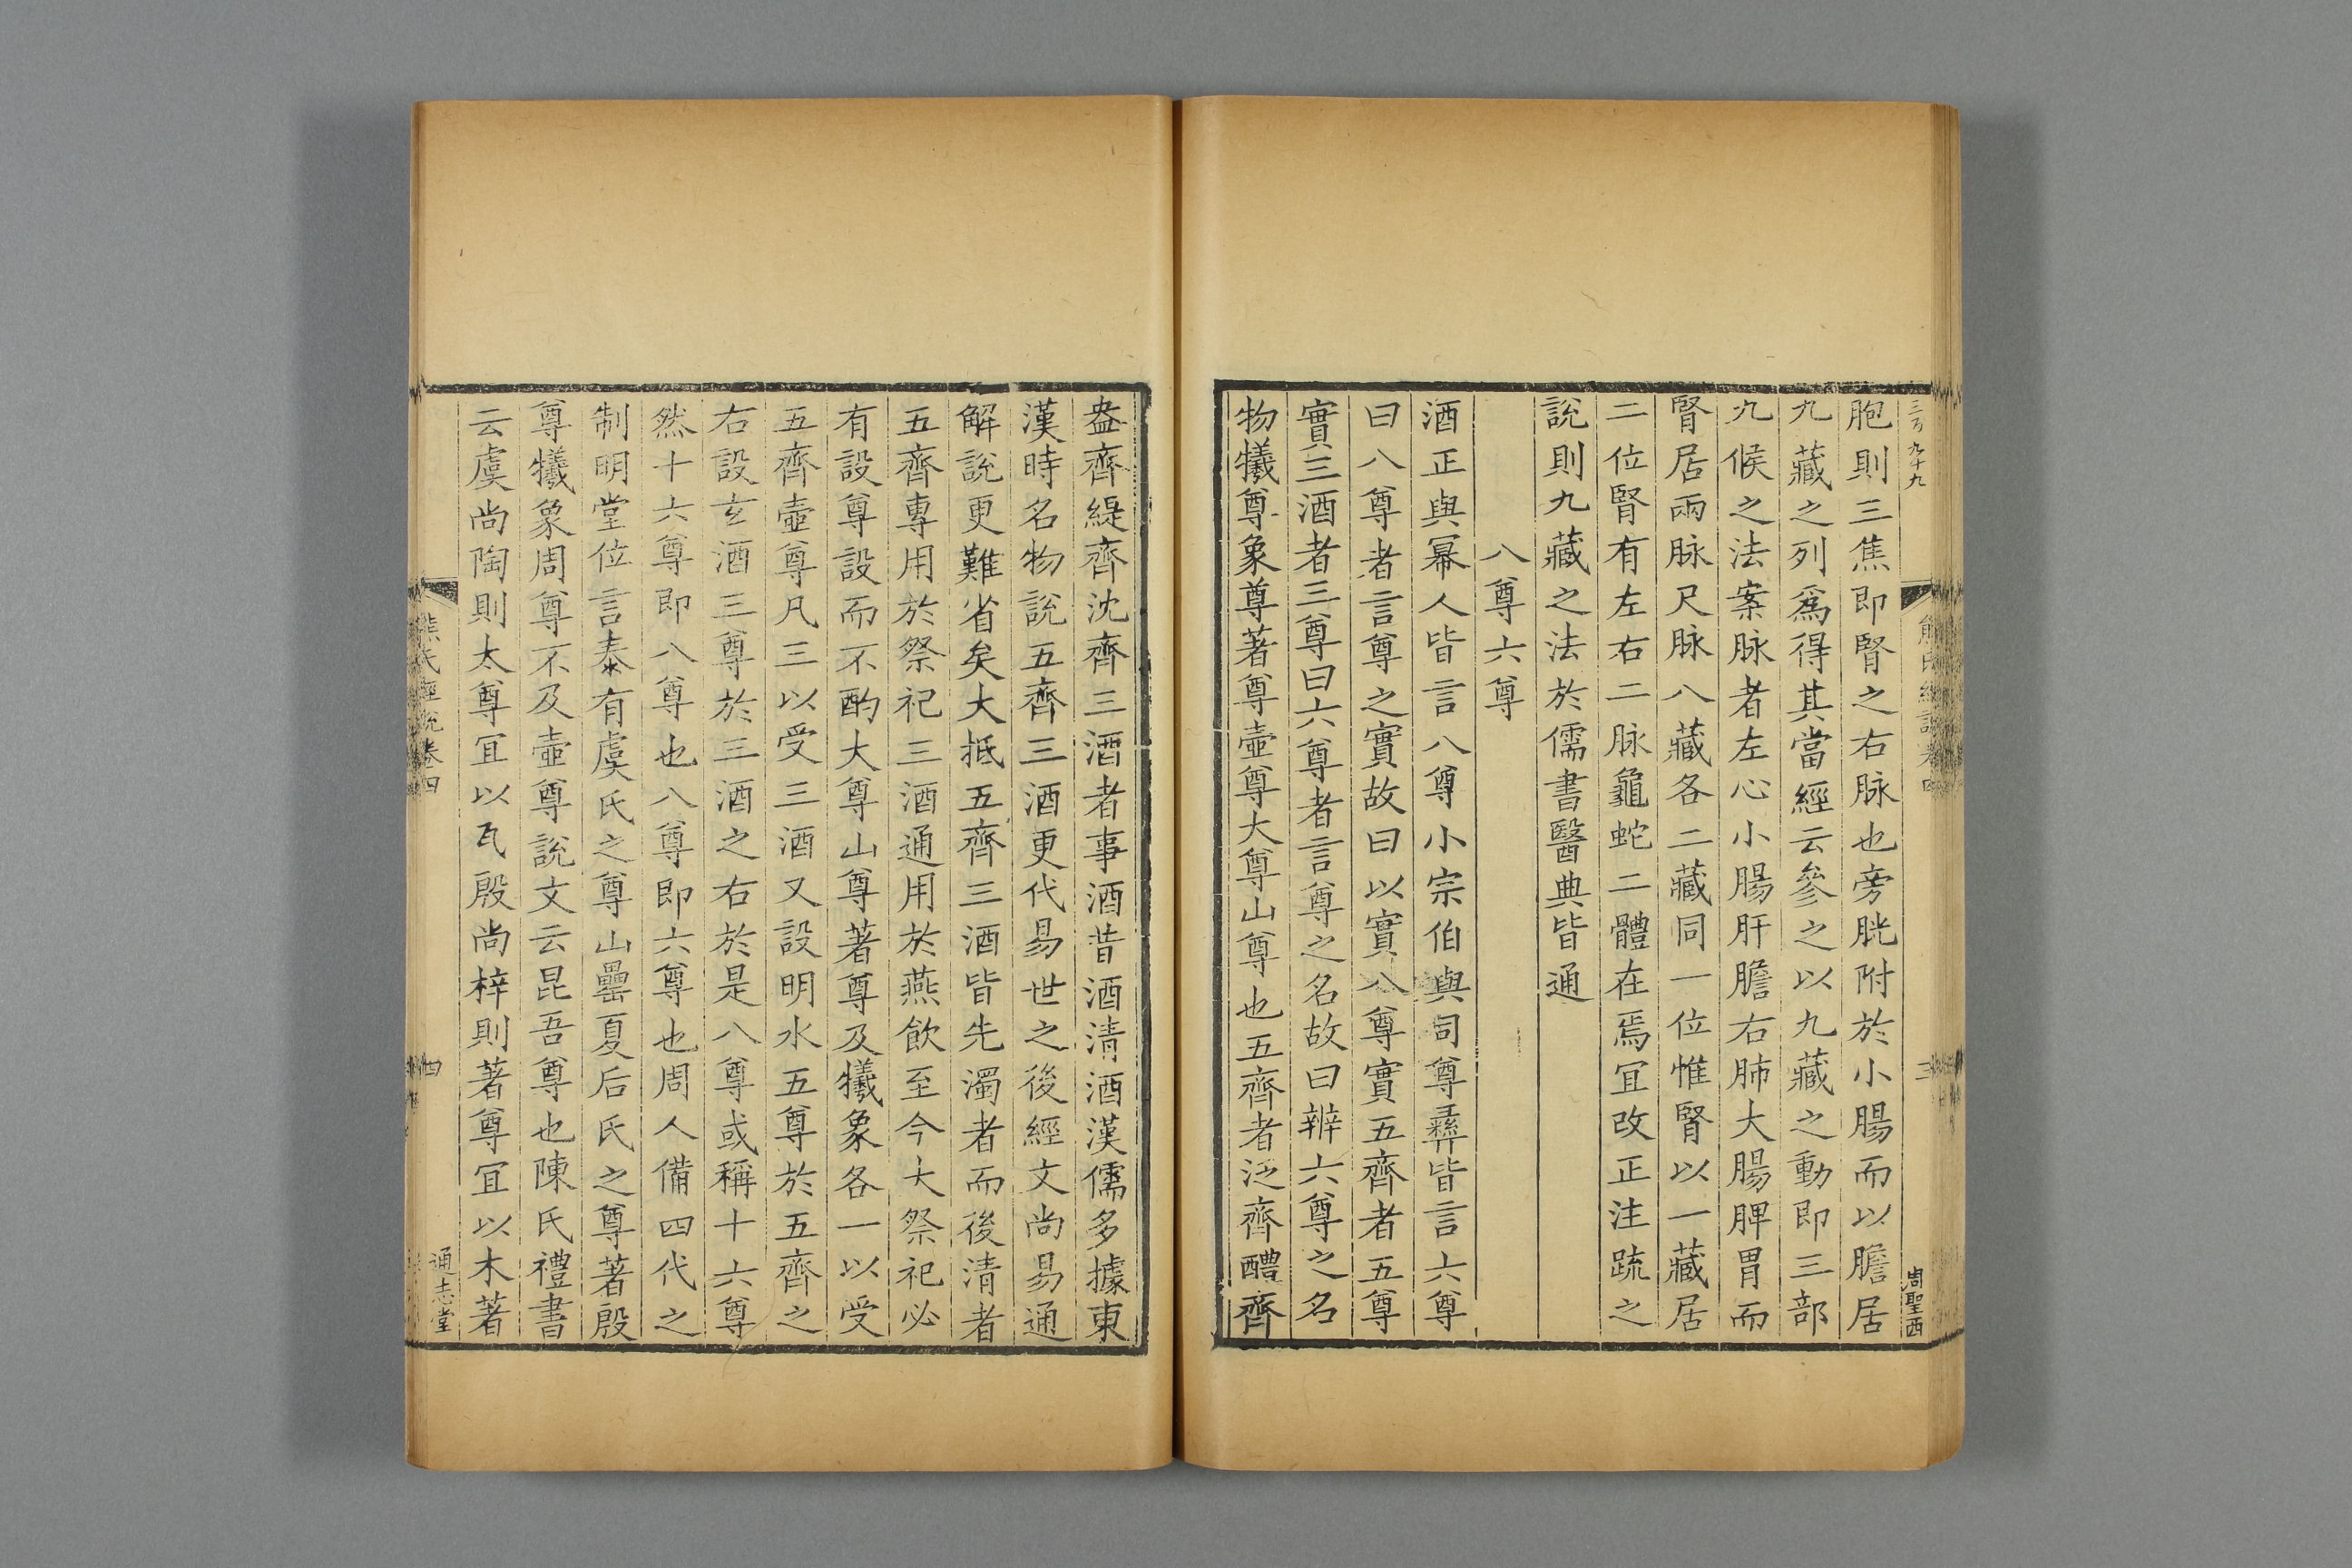 胞則三焦即腎之右脉也旁胱附於小腸而以膽居
九藏之列爲得其當經云參之以九藏之動即三部
九候之法案脉者左心小腸肝膽右肺大腸脾胃而
腎居兩脉尺脉八藏各二藏同一位惟腎以一藏居
二位腎有左右二脉龜蛇二體在焉宜改正注疏之
說則九藏之法於儒書醫典皆通
八尊六尊
酒正與冪人皆言八尊小宗伯與司尊彞皆言六尊
曰八尊者言尊之實故曰以實八尊實五齊者五尊
實三酒者三尊曰六尊者言尊之名故曰辨六尊之名
物犧尊象尊著尊壺尊大尊山尊也五齊者泛齊醴齊
周聖西
盎齊緹齊沈齊三酒者事酒昔酒清酒漢儒多據東
漢時名物說五齊三酒更代易世之後經文尚易通
解說更難省矣大抵五齊三酒皆先濁者而後清者
五齊專用於祭祀三酒通用於燕飲至今大祭祀必
有設尊設而不酌大尊山尊著尊及犧象各一以受
五齊壺尊凡三以受三酒又設明水五尊於五齊之
右設玄酒三尊於三酒之右於是八尊或稱十六尊
然十六尊即八尊也八尊即六尊也周人備四代之
制明堂位言泰有虞氏之尊山罍夏后氏之尊著殷
尊犧象周尊不及壺尊說文云昆吾尊也陳氏禮書
云虞尚陶則太尊宜以瓦殷尚梓則著尊宜以木著
熊氏經說卷四
四
通志堂